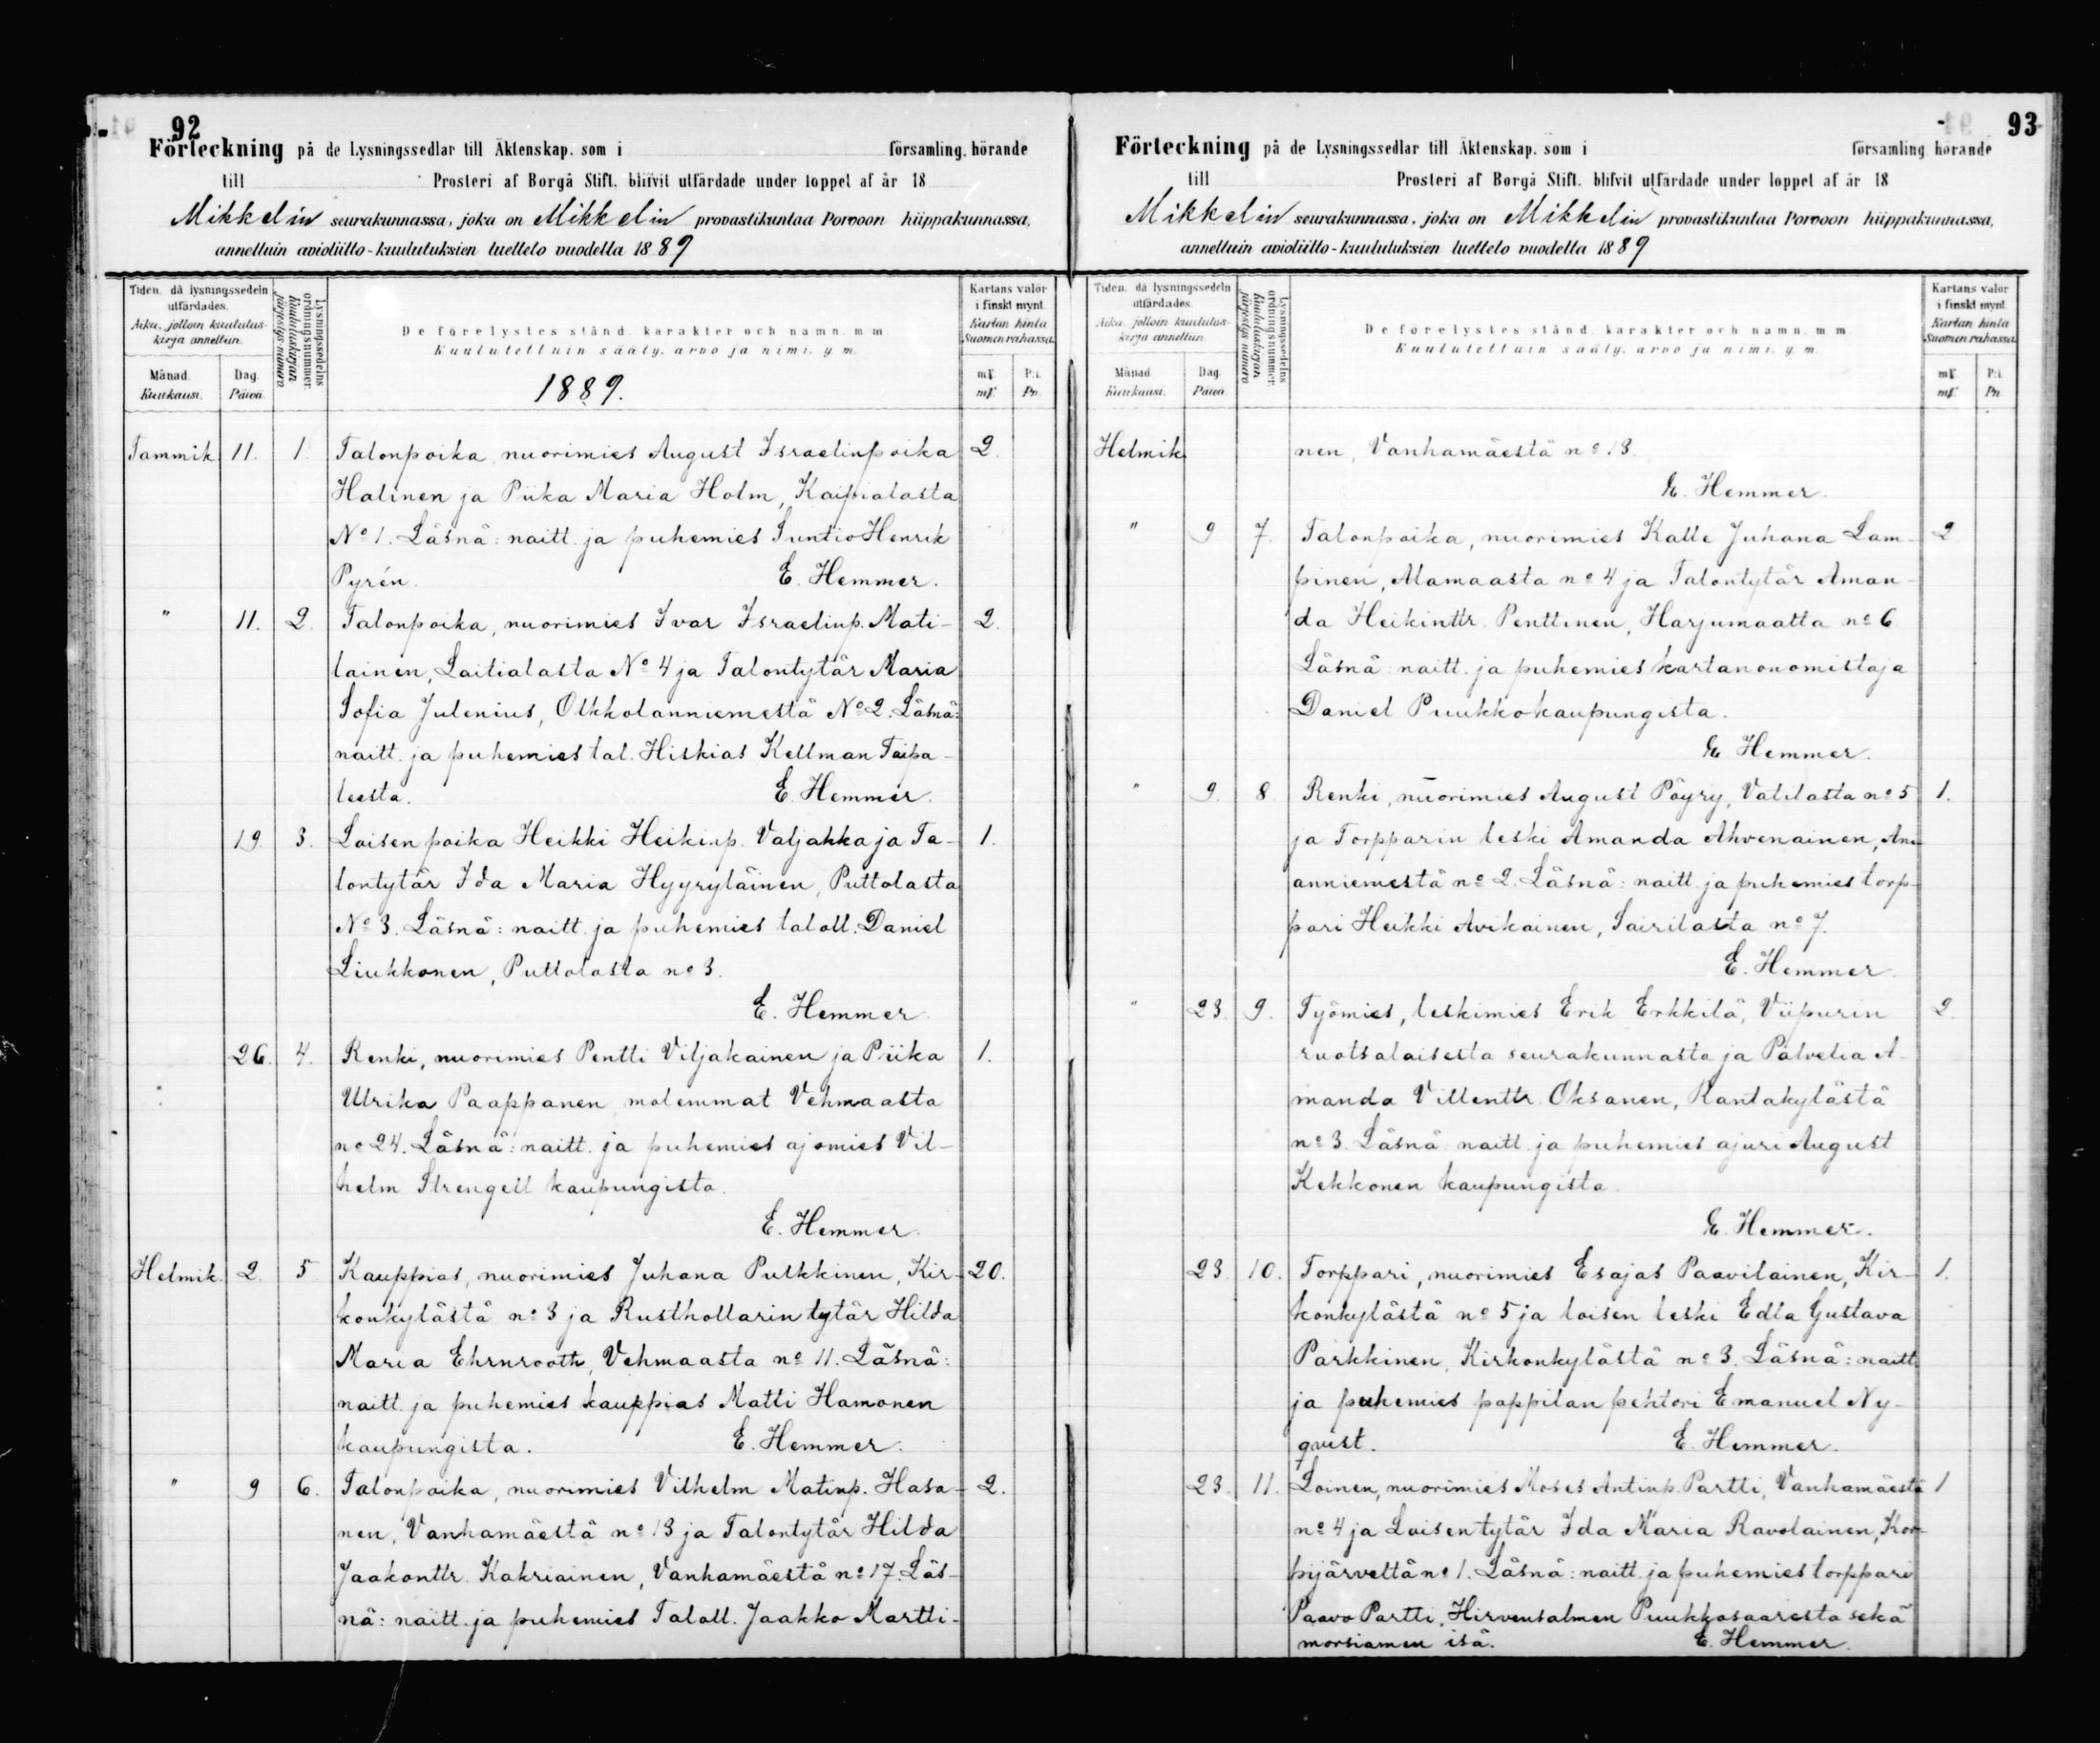 92
Förteckning på de Lysningssedlar till Äktenskap, som i församling, hörande
till Prosteri af Borgå Stift, blifvit utfärdade under loppet af år 18
Mikkelin seurakunnassa, joka on Mikkelin provastikuntaa Porvoon hiippakunnassa,
annettuin avioliitto-kuulutuksien luettelo vuodelta 1889
Tiden, då lysningssedeln
utfärdades.
Aika, jolloin kuulutus-
kirja annettun.
Månad.
Kuukausi.
Dag.
Päivä.
Lysningssedelns
ordningsnummer
Kuulutuskirjan
järjestys numero
De förelystes stånd, karakter och namn m m
Kuulutettuin sääty, arvo ja nimi, y. m.
1889.
Kartans valör
i finskt mynt.
Kartan hinta
Suomen rahassa.
mk P:i.
mk Pn.
Tammik 11. 1. Talonpoika, nuorimies August Israelinpoika 2.
Halinen ja Piika Maria Holm, Kaipialasta
No 1. Läsnä: naitt. ja puhemies Suntio Henrik
Pyrén. E. Hemmer.
" 11. 2. Talonpoika, nuorimies Ivar Israelinp. Mati- 2.
lainen, Laitialasta No 4 ja Talontytär Maria
Sofia Julenius, Olkkolanniemestä No 2. Läsnä:
naitt. ja puhemies tal. Hiskias Kellman Taipa-
leesta. E. Hemmer.
19. 3. Loisen poika Heikki Heikinp. Valjakka ja Ta- 1.
lontytär Ida Maria Hyyryläinen, Puttolasta
No 3. Läsnä: naitt. ja puhemies taloll. Daniel
Liukkonen, Puttolasta no 3.
E. Hemmer
26. 4. Renki, nuorimies Pentti Viljakainen ja Piika 1.
Ulrika Paappanen molemmat Vehmaasta
no 24. Läsnä: naitt. ja puhemies ajomies Vil-
helm Strengell kaupungista.
E. Hemmer.
Helmik. 2. 5 Kauppias, nuorimies Juhana Pulkkinen, Kir- 20.
konkylästä no 3 ja Rusthollarin tytär Hilda
Maria Ehrnrooth, Vehmaasta no 11. Läsnä:
naitt. ja puhemies kauppias Matti Hamonen
kaupungista. E. Hemmer.
" 9 6. Talonpoika, nuorimies Vilhelm Matinp. Hasa- 2.
nen, Vanhamäestä no 13 ja Talontytär Hilda
Jaakonttr. Kakriainen, Vanhamäestä no 17. Läs-
nä: naitt. ja puhemies Taloll. Jaakko Martti-
93
Förteckning på de Lysningssedlar till Äktenskap, som i församling hörande
till Prosteri af Borgå Stift, blifvit utfärdade under loppet af år 18
Mikkelin seurakunnassa, joka on Mikkelin provastikuntaa Porvoon hiippakunnassa,
annettuin avioliitto-kuulutuksien luettelo vuodelta 1889
Tiden, då lysningssedeln
utfärdades.
Aika, jolloin kuulutus-
kirja annettun.
Månad
Kuukausi.
Dag.
Päivä
Lysningssedelns
ordningsnummer
Kuulutuskirjan
järjestys numero
De förelystes stånd, karakter och namn m m
Kuulutettuin sääty, arvo ja nimi, y. m.
Kartans valör
i finskt mynt.
Kartan hinta
Suomen rahassa.
mk P:i.
mk Pn.
Helmik nen, Vanhamäestä no 13.
E. Hemmer.
" 9 7. Talonpoika, nuorimies Kalle Juhana Lam- 2
pinen, Alamaasta no 4 ja Talontytär Aman-
da Heikinttr. Penttinen, Harjumaalta no 6.
Läsnä: naitt. ja puhemies kartanonomistaja
Daniel Puukko kaupungista.
E Hemmer.
" 9. 8 Renki, nuorimies August Pöyry, Vatilasta no 5 1.
ja Torpparin leski Amanda Ahvenainen,
anniemestä no 2. Läsnä: naitt. ja puhemies torp-
pari Heikki Avikainen, Sairilasta no 7.
E. Hemmer
" 23. 9. Työmies, leskimies Erik Erkkilä, Viipurin 2.
ruotsalaisesta seurakunnasta ja Palvelia A-
manda Villenttr. Oksanen, Rantakylästä
no 3. Läsnä: naitt. ja puhemies ajuri August
Kekkonen kaupungista.
E. Hemmer.
23 10. Torppari, nuorimies Esajas Paavilainen, Kir- 1.
konkylästä no 5 ja loisen leski Edla Gustava
Parkkinen, Kirkonkylästä no 3. Läsnä: naitt.
ja puhemies pappilan pehtori Emanuel Ny-
qvist. E. Hemmer.
23. 11. Loinen, nuorimies Moses Antinp. Partti, Vanhamäestä 1
no 4 ja Loisen tytär Ida Maria Ravolainen, Kor-
pijärveltä no 1. Läsnä: naitt. ja puhemies torppari
Paavo Partti, Hirvensalmen Puukkosaaresta sekä
morsiamen isä. E. Hemmer.